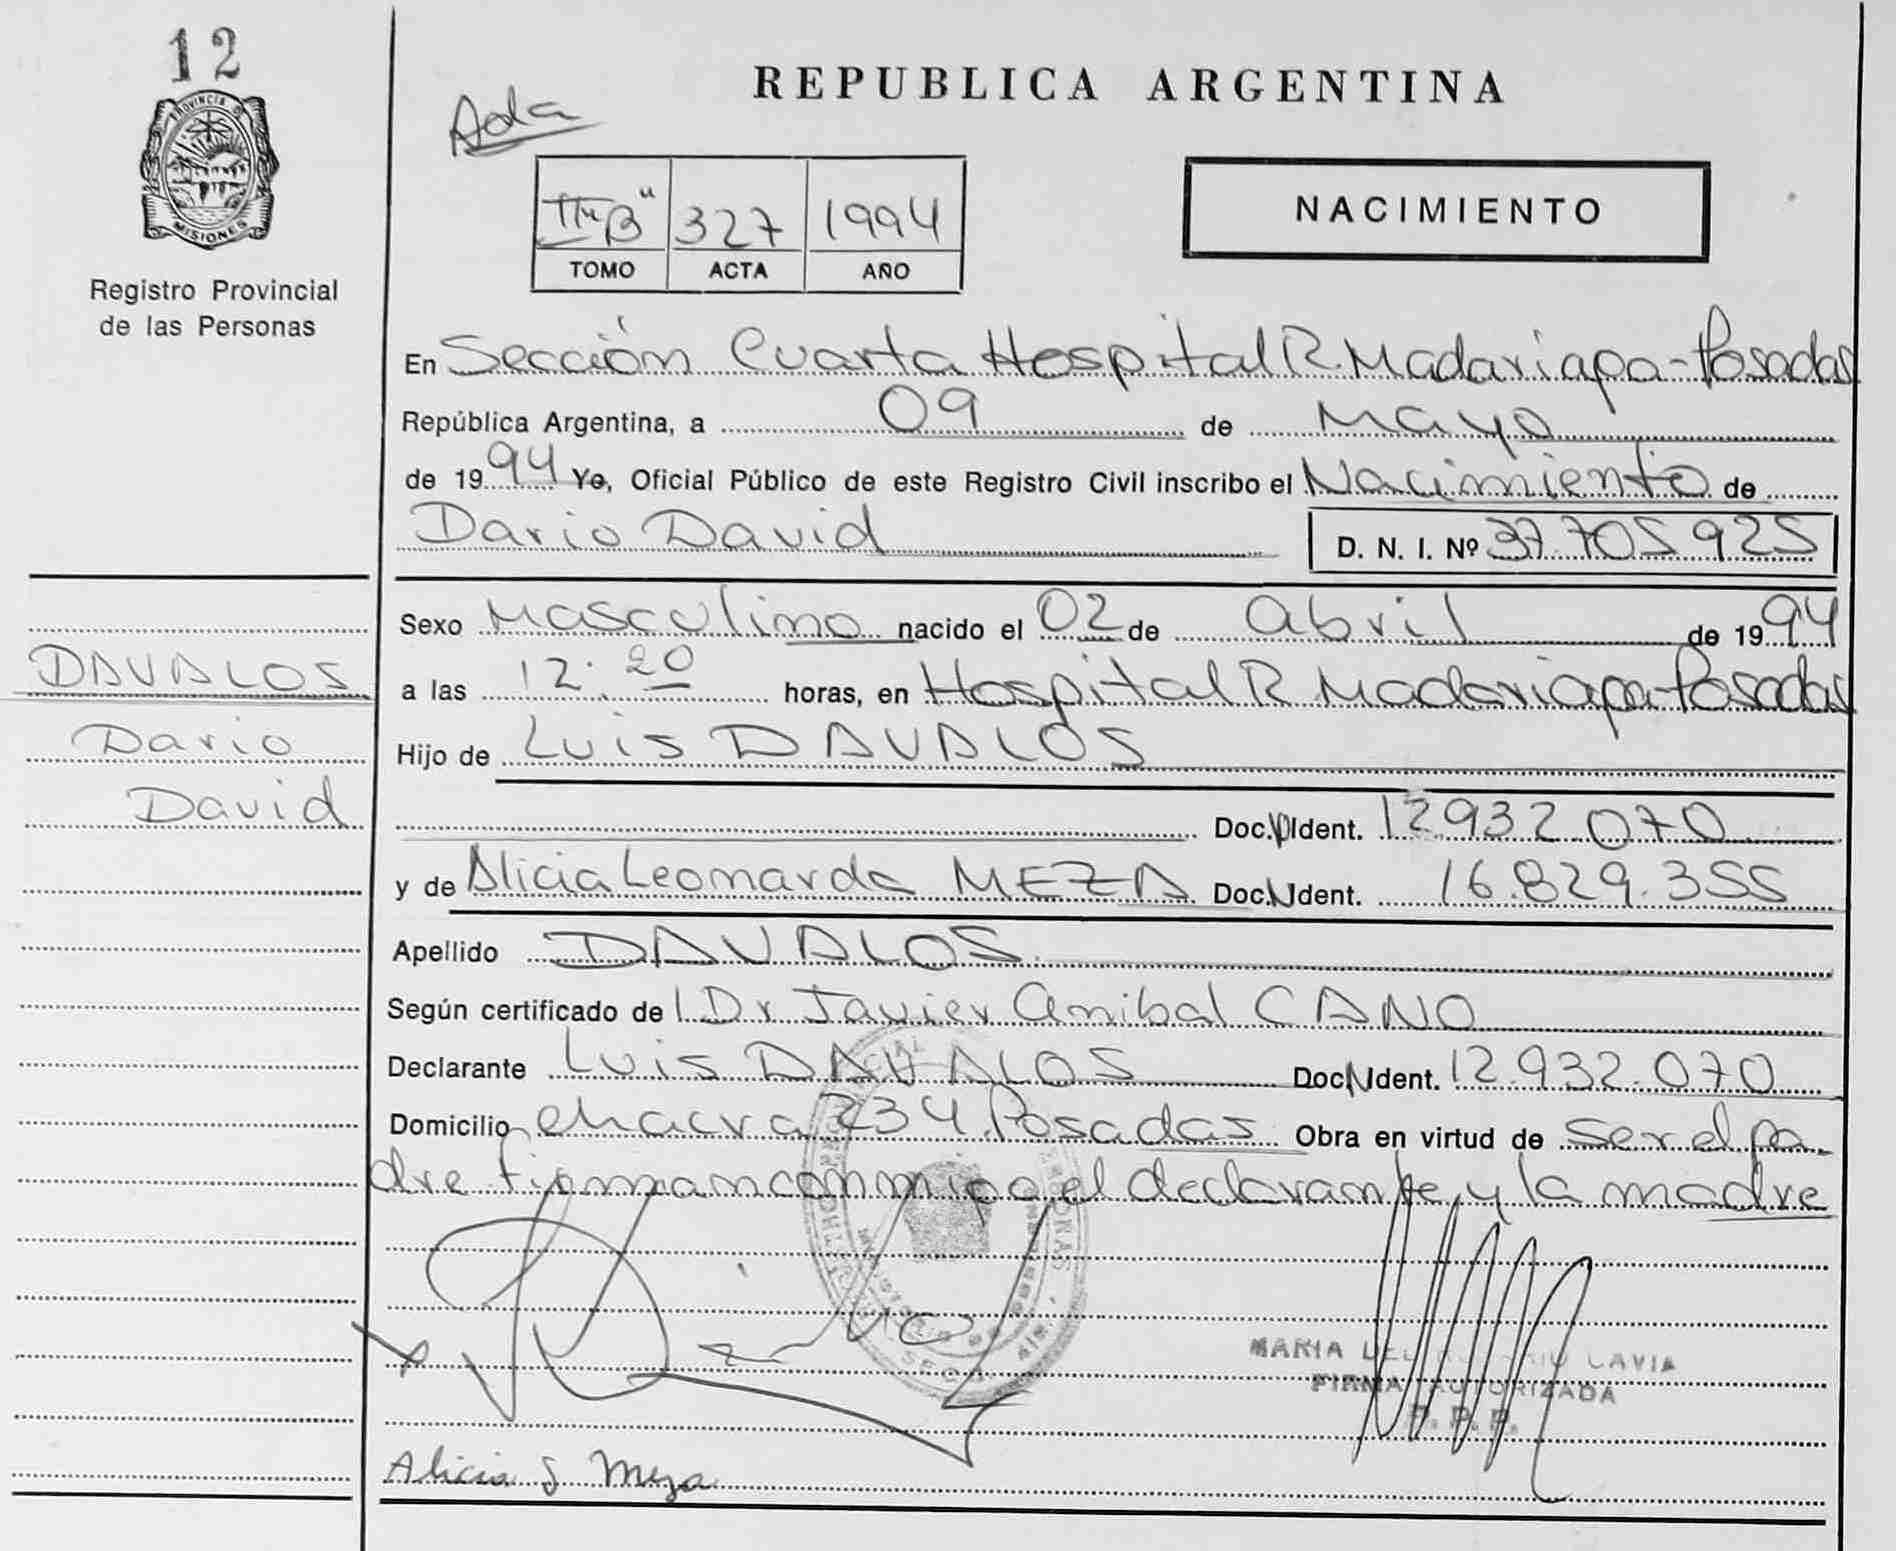 12
PROVINCIA DE
MISIONES
Registro Provincial
de las Personas
REPUBLICA ARGENTINA
IIº "B" 327 1994
TOMO ACTA AÑO
NACIMIENTO
En Sección Cuarta Hospital R. Madariaga - Posadas
República Argentina, a 09 de Mayo
de 1994 Yo, Oficial Público de este Registro Civil inscribo el Nacimiento de
Dario David D. N. I. Nº 37.705.925
Sexo Masculino nacido el 02 de abril de 1994
a las 12:20 horas, en Hospital R. Madariaga - Posadas
Hijo de Luis DAVALOS
Doc. N Ident. 12.932.070
y de Alicia Leonarda MEZA Doc. N Ident. 16.829.355
Apellido DAVALOS
Según certificado del Dr Javier Anibal CANO
Declarante Luis DAVALOS Doc. N Ident. 12.932.070
Domicilio chacra 234 Posadas Obra en virtud de ser el pa
dre firman conmigo el declarante y la madre
DAVALOS
Dario
David
MARIA DEL ROSARIO LAVIA
FIRMA AUTORIZADA
R. P. P.
Alicia L Meza